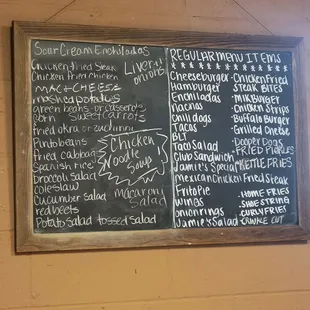 Sour Cream Enchiladas
Chicken Fried Steak
Chicken fried chicken
Liver & onions
Mac & Cheese
mashed potatoes
green beans or casserole
corn sweet carrots
fried okra or zucchini
Pinto beans
fried cabbage
Spanish rice
broccoli salad
coleslaw
Cucumber salad
red beets
Potato Salad tossed salad
Chicken
Noodle
Soup
Macaroni
Salad
REGULAR MENU ITEMS
Cheeseburger
Hamburger
Enchiladas
Nachos
Chili dogs
Tacos
BLT
Taco Salad
Club Sandwich
Jamie's Special
Mexican Chicken Fried Steak
Frito Pie
wings
onion rings
Jamie's Salad
-Chicken Fried
STEAK BITES
-Chicken Strips
-Buffalo Burger
-Grilled Cheese
FRIED PICKLES
KETTLE FRIES
.HOME FRIES
.SHOE STRING
.CURLY FRIES